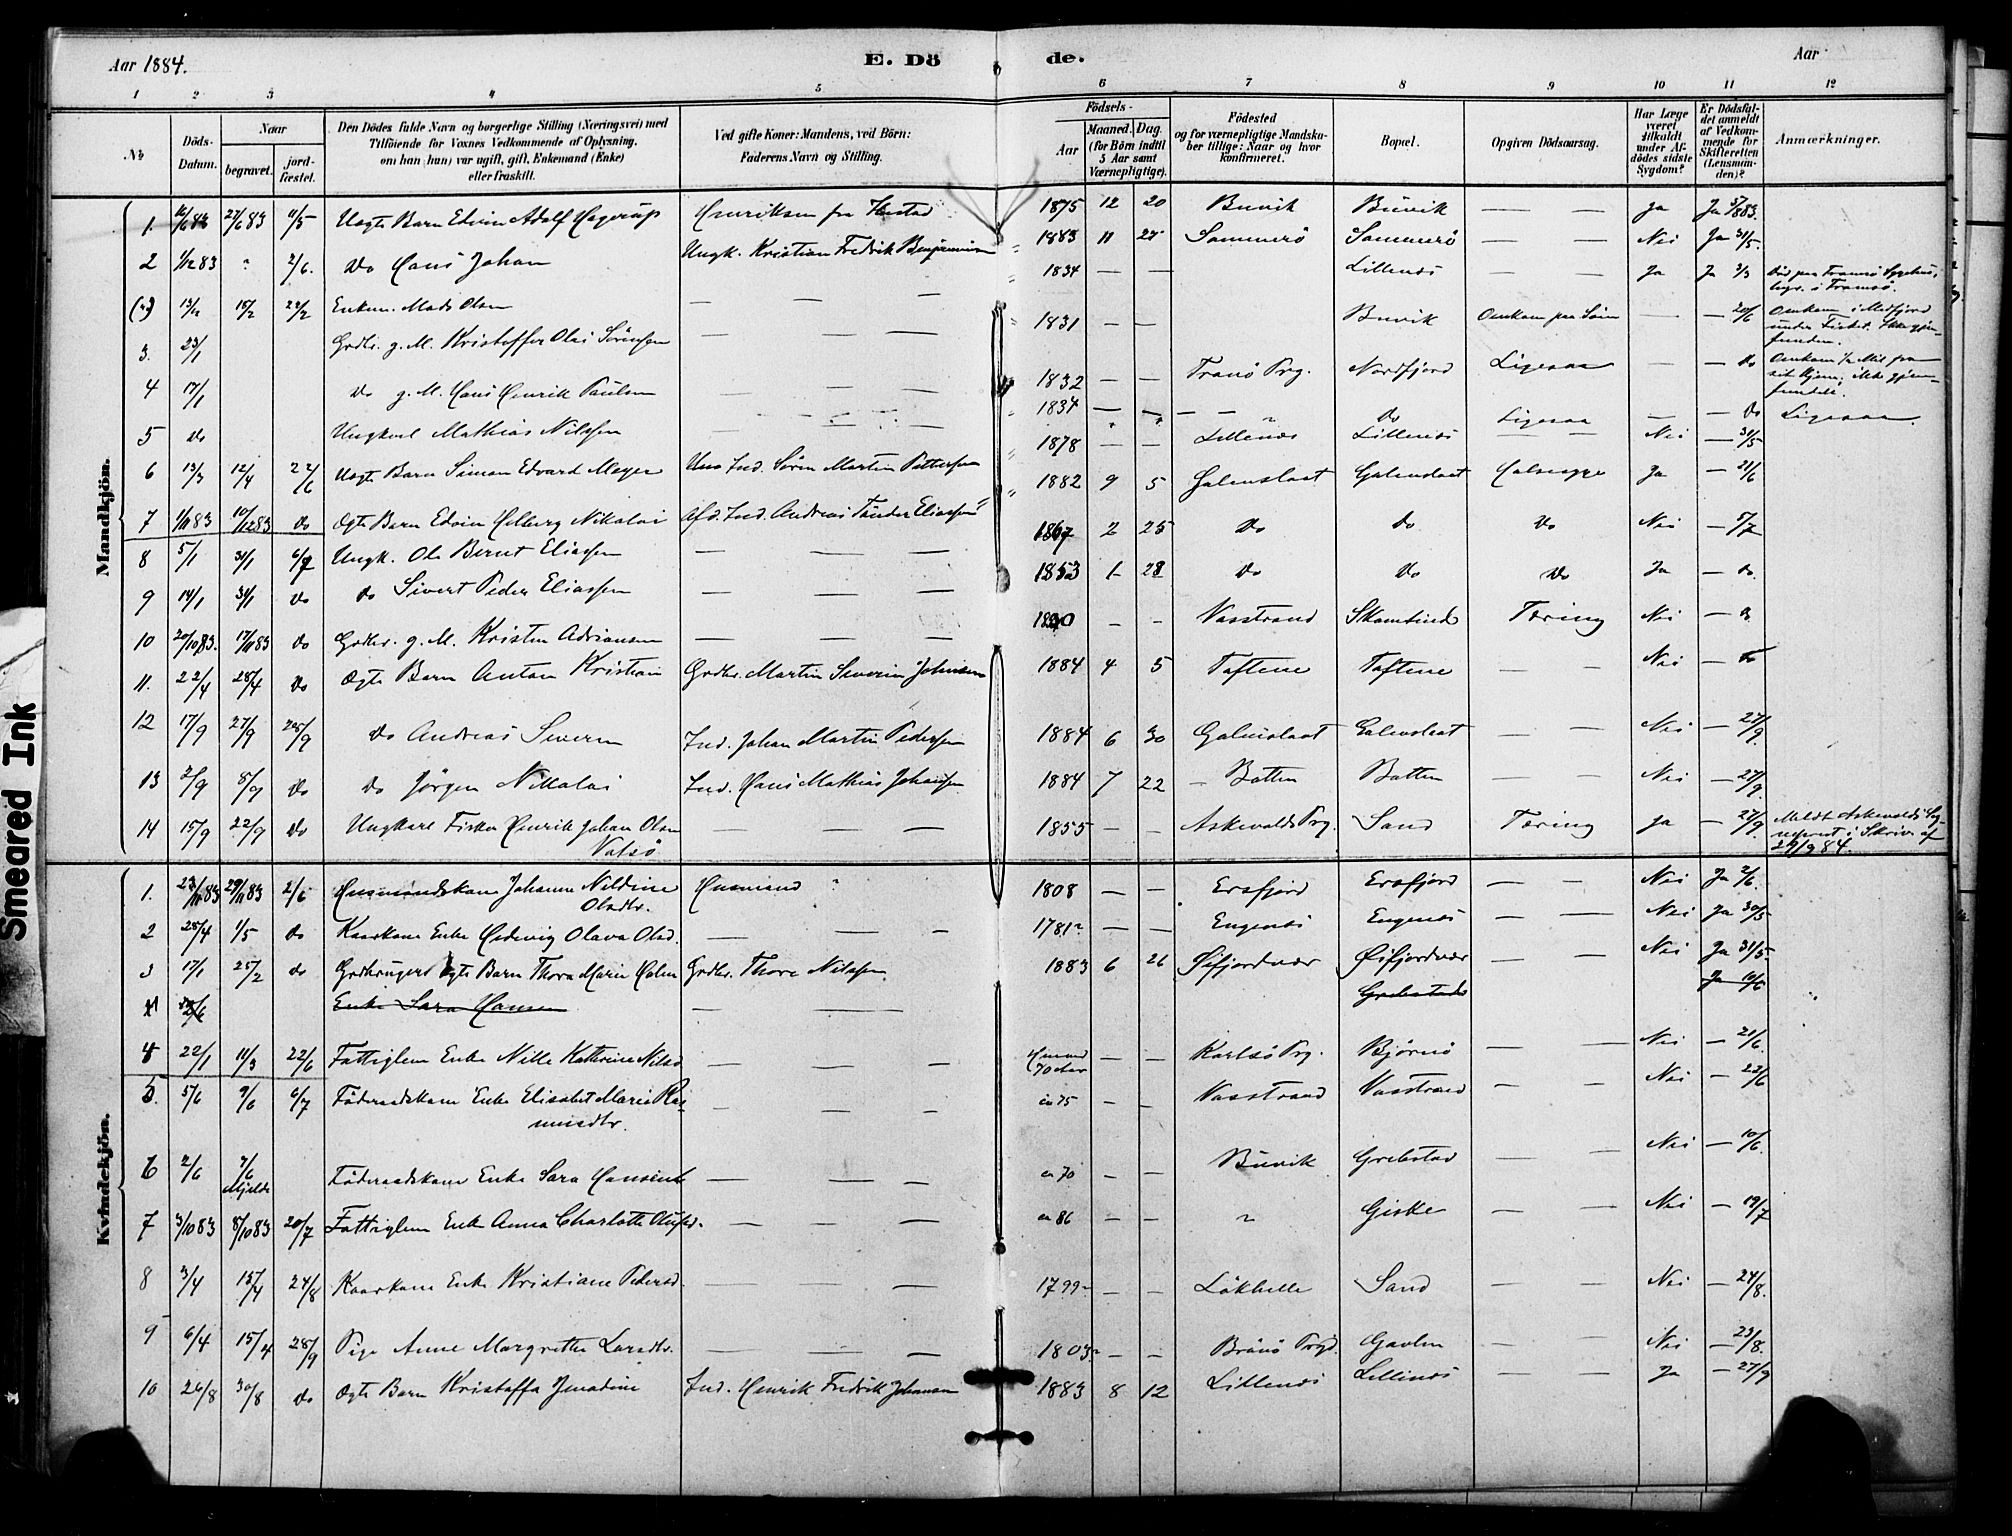 Aar 1884.
E. Dö
de.
Aar
1 2 3 4 5 6 7 8 9 10 11 12
No
Döds-Datum.
Naar
begravet.
jord-fæstet.
Den Dödes fulde Navn og borgerlige Stilling (Næringsvei) med
Tilföiende for Voxnes Vedkommende af Oplysning,
om han (hun) var ugift, gift, Enkemand (Enke)
eller fraskilt.
Ved gifte Koner: Mandens, ved Börn:
Faderens Navn og Stilling.
Födsels-
Aar
Maaned. Dag.
(for Börn indtil
5 Aar samt
Værnepligtige).
Födested
og for værnepligtige Mandska-
ber tillige: Naar og hvor
konfirmeret.
Bopæl.
Opgiven Dödsaarsag.
Har Læge
været
tilkaldt
under Af-
dödes sidste
Sygdom?
Er Dödsfal-
det anmeldt
af Vedkom-
mende for
Skifteretten
(Lensman-
den)?
Anmærkninger.
Mandkjön.
1. 27/6 83 11/5 Uægte Barn Edvin Adolf Hagerup Henriksen fra 1875 12 20 Buvik Buvik — — Ja Ja
2 1/12 83 " 2/6. Do Hans Johan Ungk. Kristian Fredrik Benjaminsen 1883 11 Sommerö Sommerö — — Nei Ja 31/5.
13/2 15/2 22/2 Enkem. Mads Olsen — — — 1834 — — Lillenæs — — Ja Ja 3/3 Död paa Tromsö Sygehus, begr. i Tromsö.
3. 23/1 Grdbr. g. M. Kristoffer Olai Sörensen — — — 1831 — — Buvik Omkom paa Söen — — 20/6 Omkom i Mefjord under Fiskeri. Ikke gjenfunden.
4 17/1 Do g. M. Hans Henrik Paulsen — — — 1832 — — Tranö Prg. Nordfjord Ligesaa — — do Omkom 1/2 Mil fra sit Hjem; ikke gjenfunden.
5 do Ungkarl Mathias Nilssen — — — 1834 — — — — Do Ligesaa — — Do Ligesaa.
6 13/3 12/4 22/6 Uægte Barn Simon Edvard Meyer Ind. Sören Martin Pettersen 1878 — — Lillenæs Lillenæs — — Nei — 31/5
7 1/11 83 10/12 83 do Ægte Barn Edvin Helberg Nikolai Afd. Ind. Andreas Tönder Eliassen 1882 9 5 Galenslaat Galenslaat Halssyge Ja — 21/6
8 5/1 31/1 6/7 Ungk. Ole Bernt Eliassen — — — 1867 2 25 Do Do Do Nei — 5/7
9 14/1 31/1 do do Sivert Peder Eliassen — — — 1853 1 28 Do Do Do Ja — do
10 20/10 83. 17/11 83 do Grdbr. g. M. Kristen Adriansen — — — — — Vasstrand Skamtind Tæring Nei —
11. 22/4 28/4 do Ægte Barn Anton Kristian Grdbr. Martin Severin Johnsen 1884 4 5 Taftene Taftene — — Nei — do
12 17/9 27/9 28/9 do Andreas Severin Ind. Johan Martin Pedersen 1884 6 30 Galenslaat Galenslaat — — Nei — 27/9.
13 2/9 8/9 do do Jörgen Nikolai Ind. Hans Mathias Johansen 1884 7 22 Botten Botten — — Nei — 27/9.
14 15/9 22/9 do Ungkarl Fisker Henrik Johan Olsen Valsö — — — 1855 — — Askevolds Prg. Sand Tæring Ja — 27/9 Meldt Askevolds Sogneprest i Skriv. af 29/9 84.
Kvindekjön.
1. 23/11 83 29/11 83 2/6 Husmandskone Johanna Nildine Olsdtr. Husmand 1808 — — Ersfjord Ersfjord — — Nei Ja 2/6.
2 28/4 1/5 do Kaarkone Enke Hedevig Olava Olsd. — — — 1781 — — Engenæs Engenæs — — Nei Ja 30/5
3 17/1 25/2 do Grdbrugers Ægte Barn Thora Marie Holm Grdbr. Thore Nilssen 1883 6 26 Öifjordvær Öifjordvær — — Nei Ja 31/5.
Enke Sara Hansen Grebstad Ja 10/6
4 22/1 11/3 22/6 Fattiglem Enke Nille Katherine Nilsd — — — 70 Aar — — Karlsö Prg. Björnö — — Nei — 21/6.
5. 5/6 9/6 6/7 Föderaadskone Enke Elisabet Marie Rasmusdtr. — — — ca 75 — — Vasstrand Vasstrand — — Nei — 23/6
6 2/6 7/6 Mjelde Föderaadskone Enke Sara Hansen — — — ca 70 — — Buvik Grebstad — — Nei — 10/6.
7 3/10 83 8/10 83 20/7 Fattiglem Enke Anna Charlotte Olufsd. — — — ca 86 — — " Giske — — Nei — 19/7
8 3/4 15/4 24/8 Kaarkone Enke Kristiane Pedersd. — — — 1799 — — Lökhelle Sand — — Nei — 24/8.
9 6/4 15/4 28/9 Pige Anne Margrethe Larsdtr. — — — 1803 — — Brönö Prgd. Gavlen — — Nei — 23/8.
10 26/8 30/8 do Ægte Barn Kristoffa Jenadine Ind. Henrik Fredrik Johansen 1883 8 12 Lillenæs Lillenæs — — Ja — 27/9
Smeared Ink